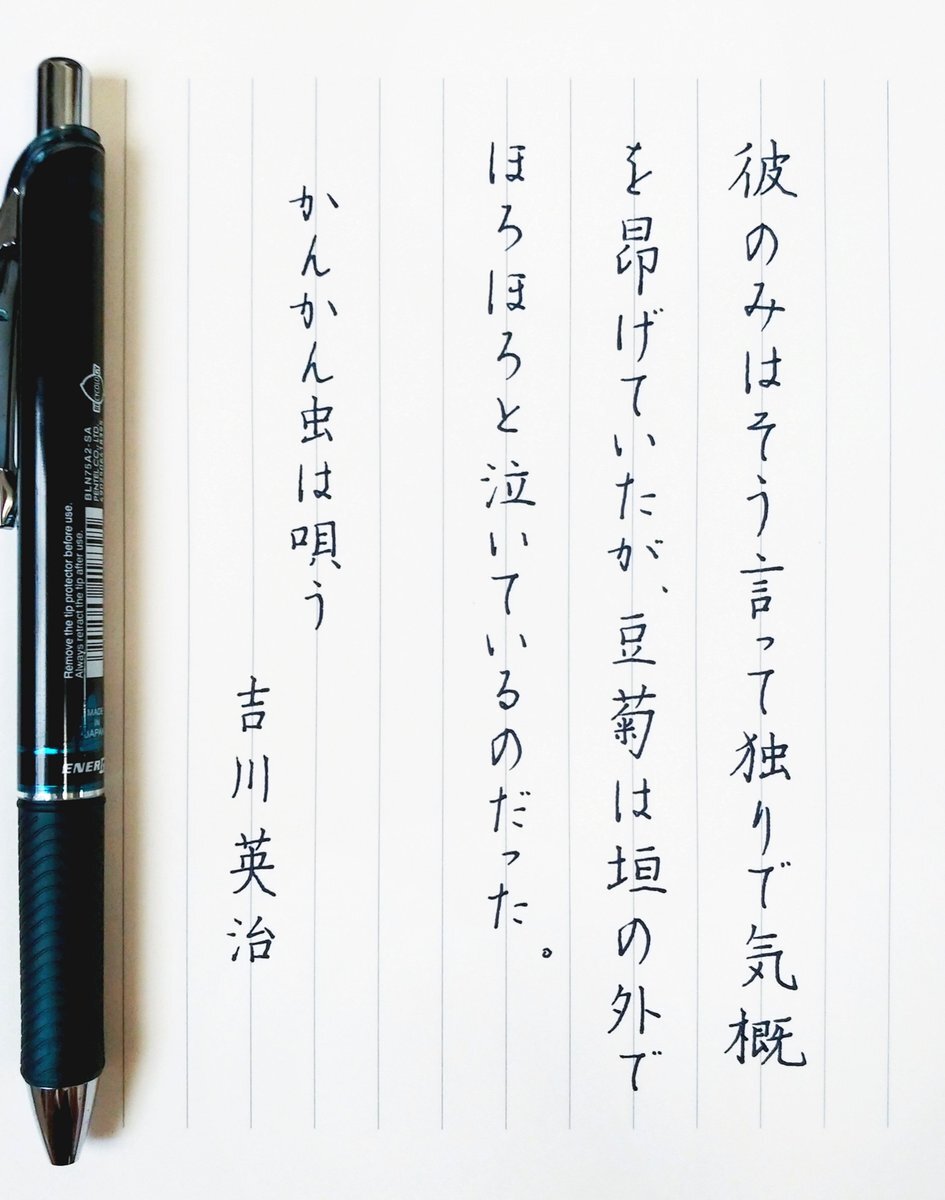 彼のみはそう言って独りで気概
を昂げていたが、豆菊は垣の外で
ほろほろと泣いているのだった。
かんかん虫は唄う
吉川英治
Remove the tip protector before use.
Always retract the tip after use.
BLN75A2-SA
PENTEL CO., LTD.
MADE
IN
JAPAN